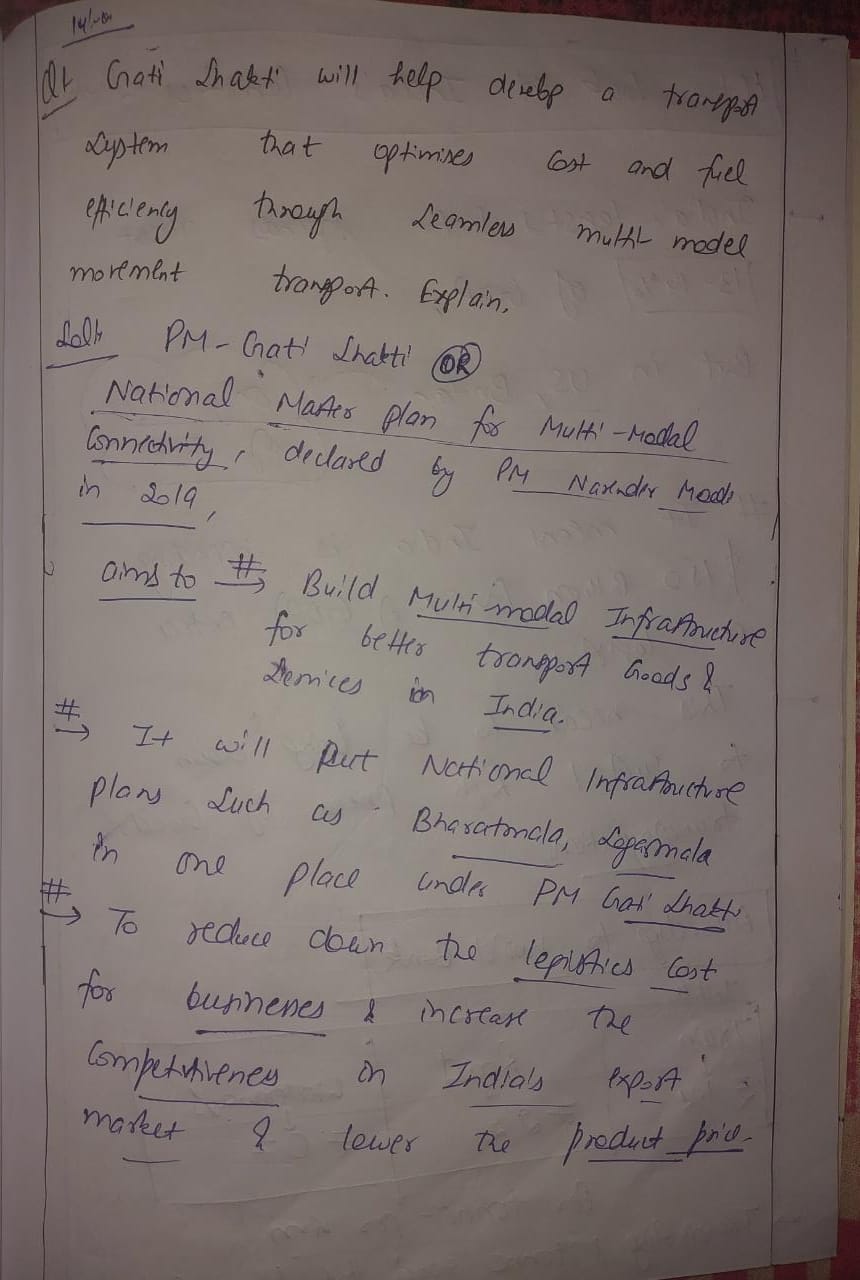 Q1 Gati Shakti will help develop a transport
system that optimises cost and fuel
efficiency through seamless multi model
movement transport. Explain.
Soln PM - Gati Shakti OR
National Master plan for Multi-Modal
Connectivity, declared by PM Narender Modi
in 2019,
aims to # → Build Multi modal Infrastructure
for better transport Goods &
Services in India.
# → It will put National Infrastructure
plans such as Bharatmala, Sagarmala
in one place under PM Gati Shakti
# → To reduce down the logistics cost
for businesses & increase the
Competitiveness in India's export
market & lower the product price.